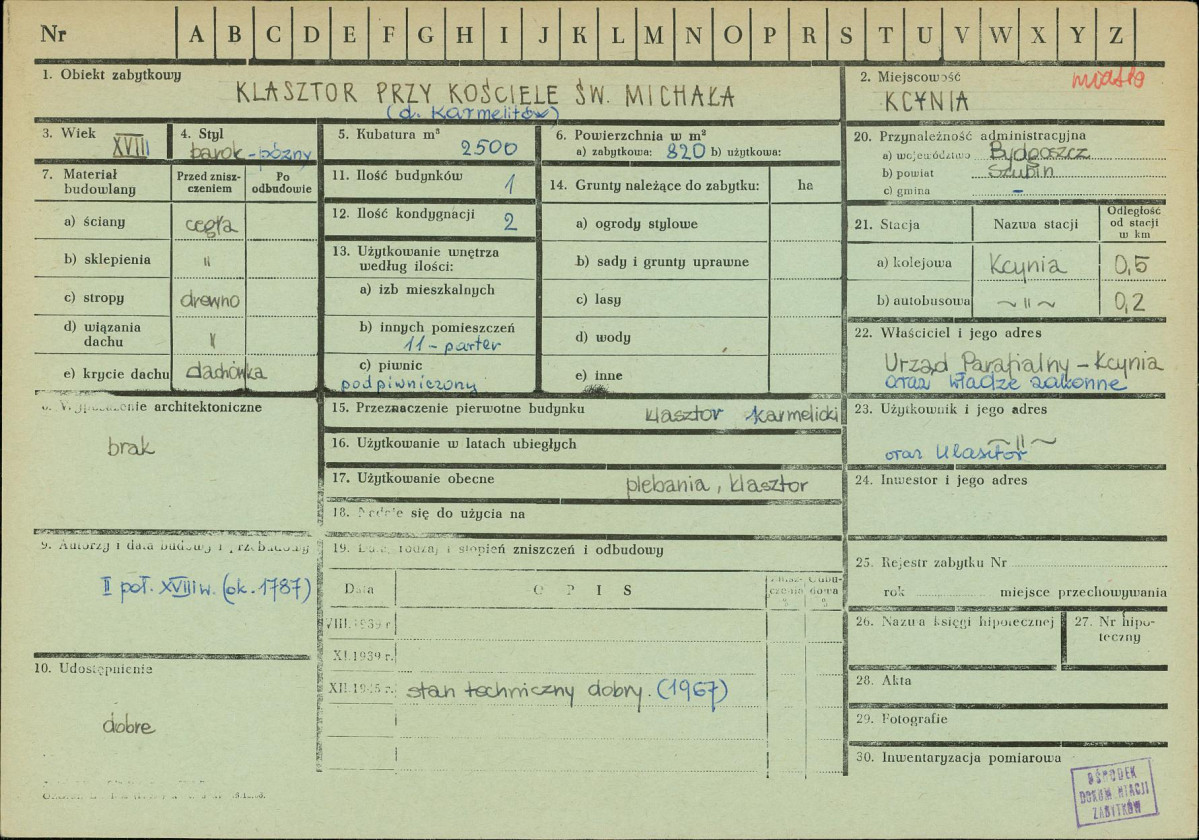 Nr A B C D E F G H I J K L M N O P R S T U V W X Y Z
1. Obiekt zabytkowy
KLASZTOR PRZY KOŚCIELE ŚW. MICHAŁA
(d. Karmelitów)
2. Miejscowość
miasto
KCYNIA
3. Wiek
XVIII
4. Styl
barok - późny
5. Kubatura m³
2500
6. Powierzchnia w m²
a) zabytkowa: 820 b) użytkowa:
20. Przynależność administracyjna
a) województwo Bydgoszcz
b) powiat Szubin
c) gmina -
7. Materiał budowlany
Przed znisz-
czeniem
Po
odbudowie
a) ściany cegła
b) sklepienia "
c) stropy drewno
d) wiązania
dachu "
e) krycie dachu dachówka
11. Ilość budynków 1
12. Ilość kondygnacji 2
13. Użytkowanie wnętrza
według ilości:
a) izb mieszkalnych
b) innych pomieszczeń
11 - parter
c) piwnic
podpiwniczony
14. Grunty należące do zabytku: ha
a) ogrody stylowe
b) sady i grunty uprawne
c) lasy
d) wody
e) inne
21. Stacja Nazwa stacji
Odległość
od stacji
w km
a) kolejowa Kcynia 0,5
b) autobusowa ~ " ~ 0,2
22. Właściciel i jego adres
Urząd Parafialny - Kcynia
oraz władze zakonne
architektoniczne
brak
15. Przeznaczenie pierwotne budynku klasztor karmelicki
16. Użytkowanie w latach ubiegłych
17. Użytkowanie obecne plebania, klasztor
18. Nadaje się do użycia na
23. Użytkownik i jego adres
~ " ~
oraz klasztor
24. Inwestor i jego adres
9. Autorzy i data budowy i przebudowy
II poł. XVIII w. (ok. 1787)
19. Data, rodzaj i stopień zniszczeń i odbudowy
Data O P I S
Znisz-
czenia
%
Odbu-
dowa
%
VIII.1939 r
XI.1939 r.
XII.1945 r. stan techniczny dobry. (1967)
10. Udostępnienie
dobre
25. Rejestr zabytku Nr
rok miejsce przechowywania
26. Nazwa księgi hipotecznej
27. Nr hipo-
teczny
28. Akta
29. Fotografie
30. Inwentaryzacja pomiarowa
OŚRODEK
DOKUMENTACJI
ZABYTKÓW